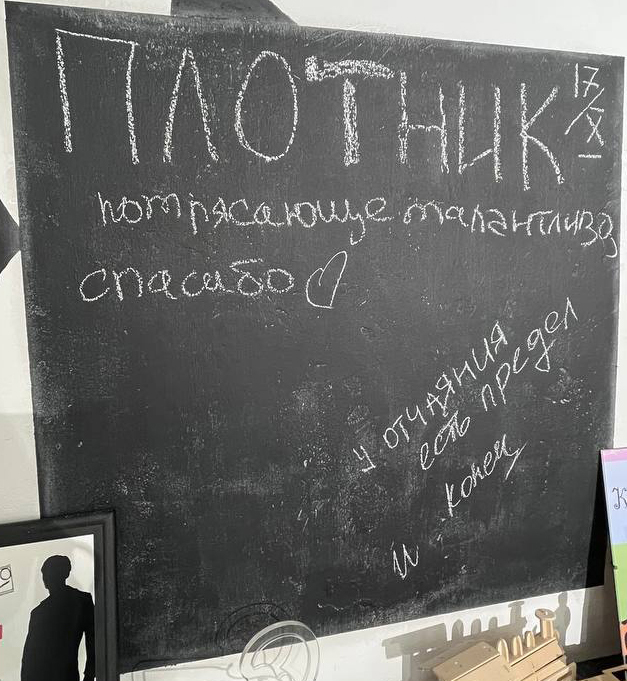 ПЛОТНИК 17/X
потрясающе талантливо
спасибо
у отчаяния
есть предел
и конец
К